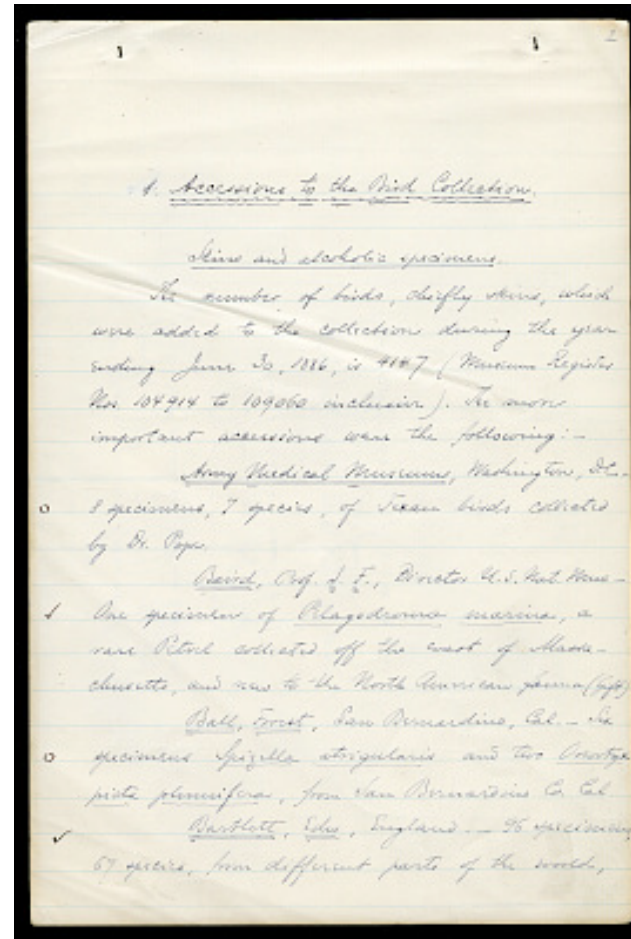 1
1. Accessions to the Bird Collection.
Skins and alcoholic specimens.
The number of birds, chiefly skins, which
were added to the collection during the year
ending June 30, 1886, is 4147 (Museum Register
Nos. 104914 to 109060 inclusive). The more
important accessions were the following: -
Army Medical Museum, Washington, D.C. -
8 specimens, 7 species, of Texan birds collected
by Dr. Pope.
Baird, Prof. S. F., Director U.S. Nat. Mus -
One specimen of Pelagodroma marina, a
rare Petrel collected off the coast of Massa-
chusetts, and new to the North American fauna (Gift)
Ball, Forest, San Bernardino, Cal. - Six
specimens Spizella atrigularis and two Oreortyx
picta plumifera, from San Bernardino Co. Cal.
Bartlett, Edw, England. - 96 specimens
67 species, from different parts of the world,